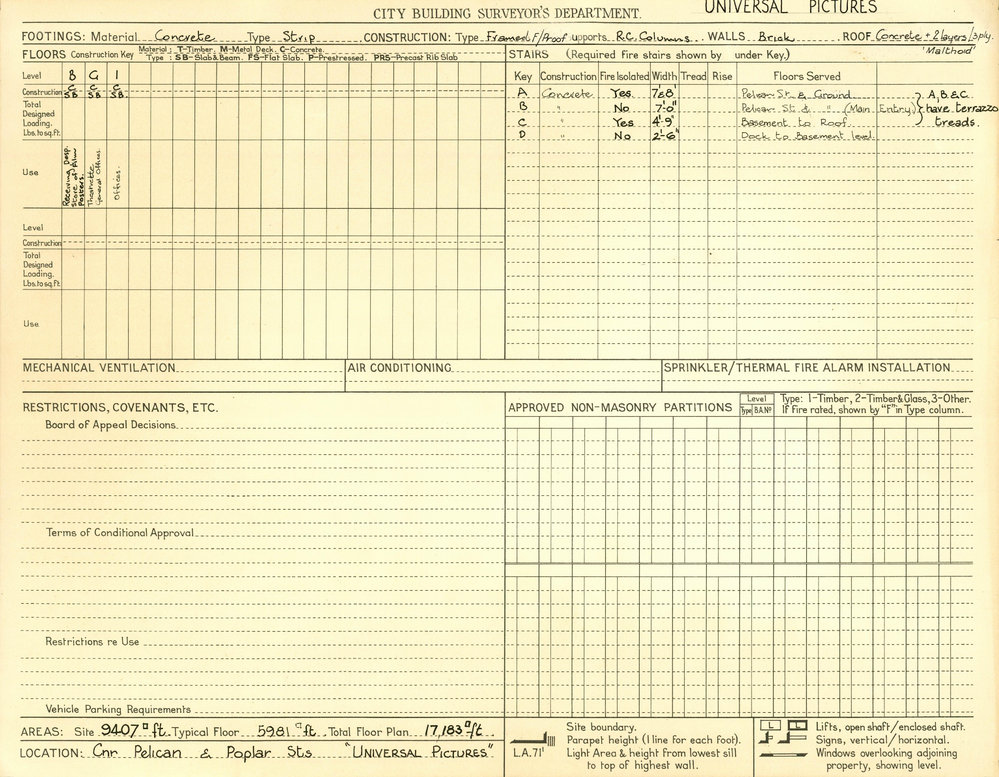 UNIVERSAL PICTURES
CITY BUILDING SURVEYOR'S DEPARTMENT.
FOOTINGS: Material Concrete Type Strip CONSTRUCTION: Type Framed F/Proof Supports R.C. Columns. WALLS Brick ROOF Concrete + 2 layers 3ply.
'Malthoid'
FLOORS Construction Key Material: T-Timber. M-Metal Deck. C-Concrete.
Type: SB-Slab & Beam. FS-Flat Slab. P-Prestressed. PRS-Precast Rib Slab
Level B G 1
Construction C C C
SB SB SB.
Total
Designed
Loading.
Lbs. to sq. ft.
Use
Receiving Desp. Store of Film Posters.
Theatrette General Offices.
Offices.
Level
Construction
Total
Designed
Loading.
Lbs. to sq. ft.
Use
STAIRS (Required fire stairs shown by under Key.)
Key Construction Fire Isolated Width Tread Rise Floors Served
A Concrete Yes 7'&8' Pelican St. & Ground
B " No 7'-0" Pelican St. & " (Main Entry)
C " Yes 4'-9" Basement to Roof
D " No 2'-6" Dock to Basement level.
A, B & C
have terrazzo
treads.
MECHANICAL VENTILATION
AIR CONDITIONING
SPRINKLER/THERMAL FIRE ALARM INSTALLATION
RESTRICTIONS, COVENANTS, ETC.
Board of Appeal Decisions.
Terms of Conditional Approval
Restrictions re Use
Vehicle Parking Requirements
APPROVED NON-MASONRY PARTITIONS
Level
Type B.A.Nº
Type: 1-Timber, 2-Timber & Glass, 3-Other.
If Fire rated, shown by "F" in Type column.
AREAS: Site 9407 □ ft. Typical Floor 5981 □ ft. Total Floor Plan 17,183 □ ft
LOCATION: Cnr Pelican & Poplar Sts "UNIVERSAL PICTURES"
Site boundary.
Parapet height (1 line for each foot).
L.A.71' Light Area & height from lowest sill
to top of highest wall.
L L Lifts, open shaft/enclosed shaft.
Signs, vertical/horizontal.
Windows overlooking adjoining
property, showing level.